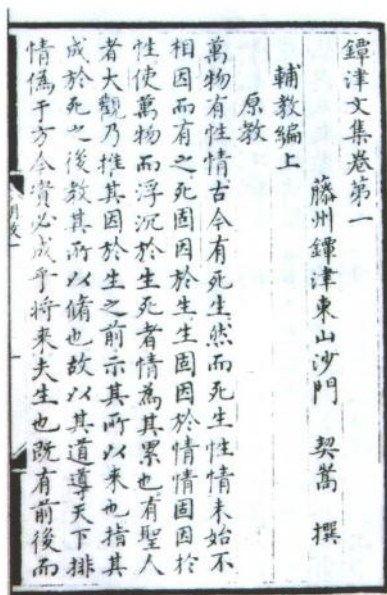 鐔津文集卷第一
藤州鐔津東山沙門 契嵩 撰
輔教編上
原教
萬物有性情古今有死生然而死生性情未始不
相因而有之死固因於生生固因於情情固因於
性使萬物而浮沉於生死者情為其累也有聖人
者大觀乃推其因於生之前示其所以來也指其
成於死之後教其所以脩也故以其道導天下排
情偽于方今資必成乎將來夫生也既有前後而